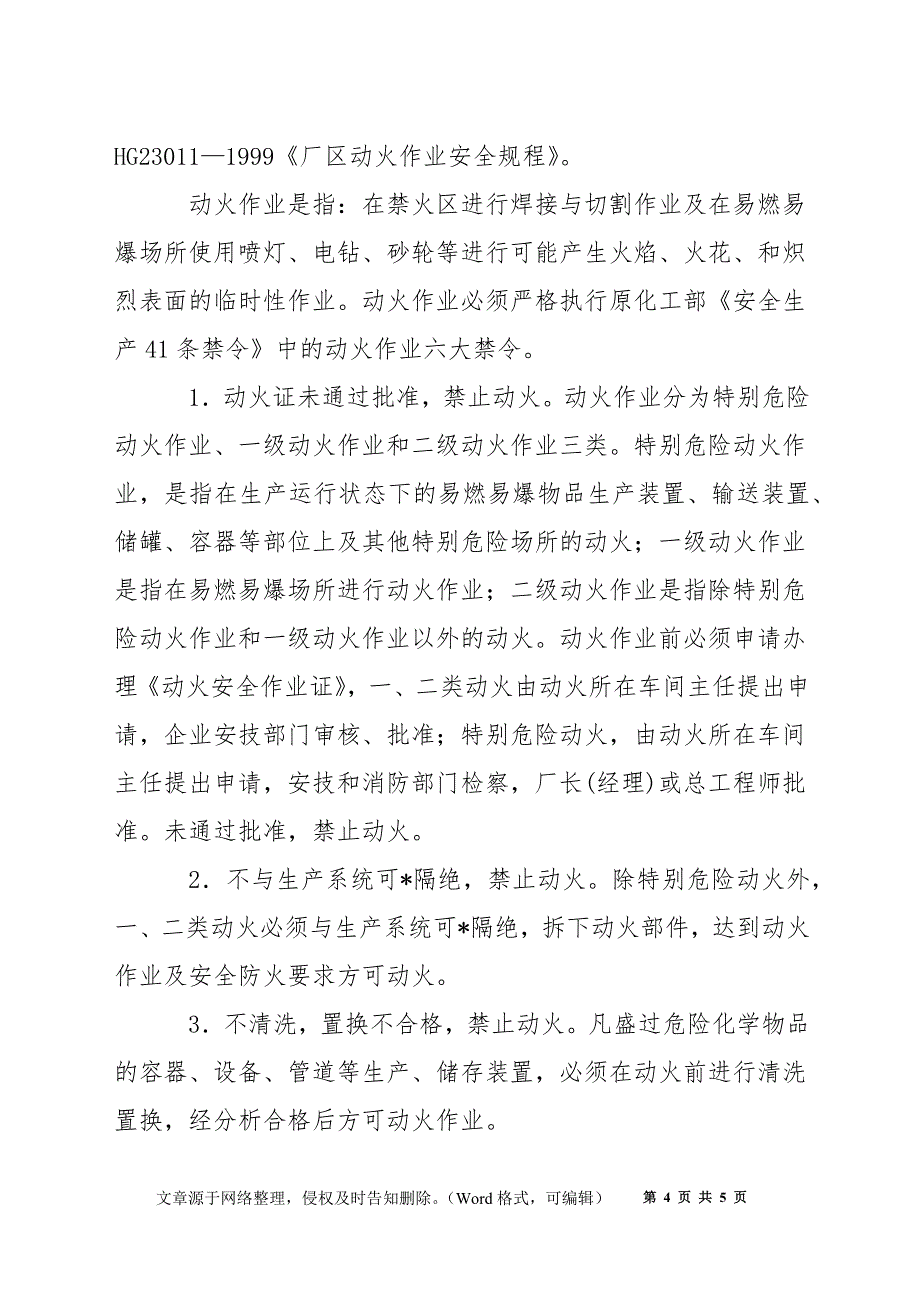 HG23011—1999《厂区动火作业安全规程》。
动火作业是指：在禁火区进行焊接与切割作业及在易燃易
爆场所使用喷灯、电钻、砂轮等进行可能产生火焰、火花、和炽
烈表面的临时性作业。动火作业必须严格执行原化工部《安全生
产 41 条禁令》中的动火作业六大禁令。
1．动火证未通过批准，禁止动火。动火作业分为特别危险
动火作业、一级动火作业和二级动火作业三类。特别危险动火作
业，是指在生产运行状态下的易燃易爆物品生产装置、输送装置、
储罐、容器等部位上及其他特别危险场所的动火；一级动火作业
是指在易燃易爆场所进行动火作业；二级动火作业是指除特别危
险动火作业和一级动火作业以外的动火。动火作业前必须申请办
理《动火安全作业证》，一、二类动火由动火所在车间主任提出申
请，企业安技部门审核、批准；特别危险动火，由动火所在车间
主任提出申请，安技和消防部门检察，厂长(经理)或总工程师批
准。未通过批准，禁止动火。
2．不与生产系统可*隔绝，禁止动火。除特别危险动火外，
一、二类动火必须与生产系统可*隔绝，拆下动火部件，达到动火
作业及安全防火要求方可动火。
3．不清洗，置换不合格，禁止动火。凡盛过危险化学物品
的容器、设备、管道等生产、储存装置，必须在动火前进行清洗
置换，经分析合格后方可动火作业。
文章源于网络整理，侵权及时告知删除。（Word 格式，可编辑） 第 4 页 共 5 页